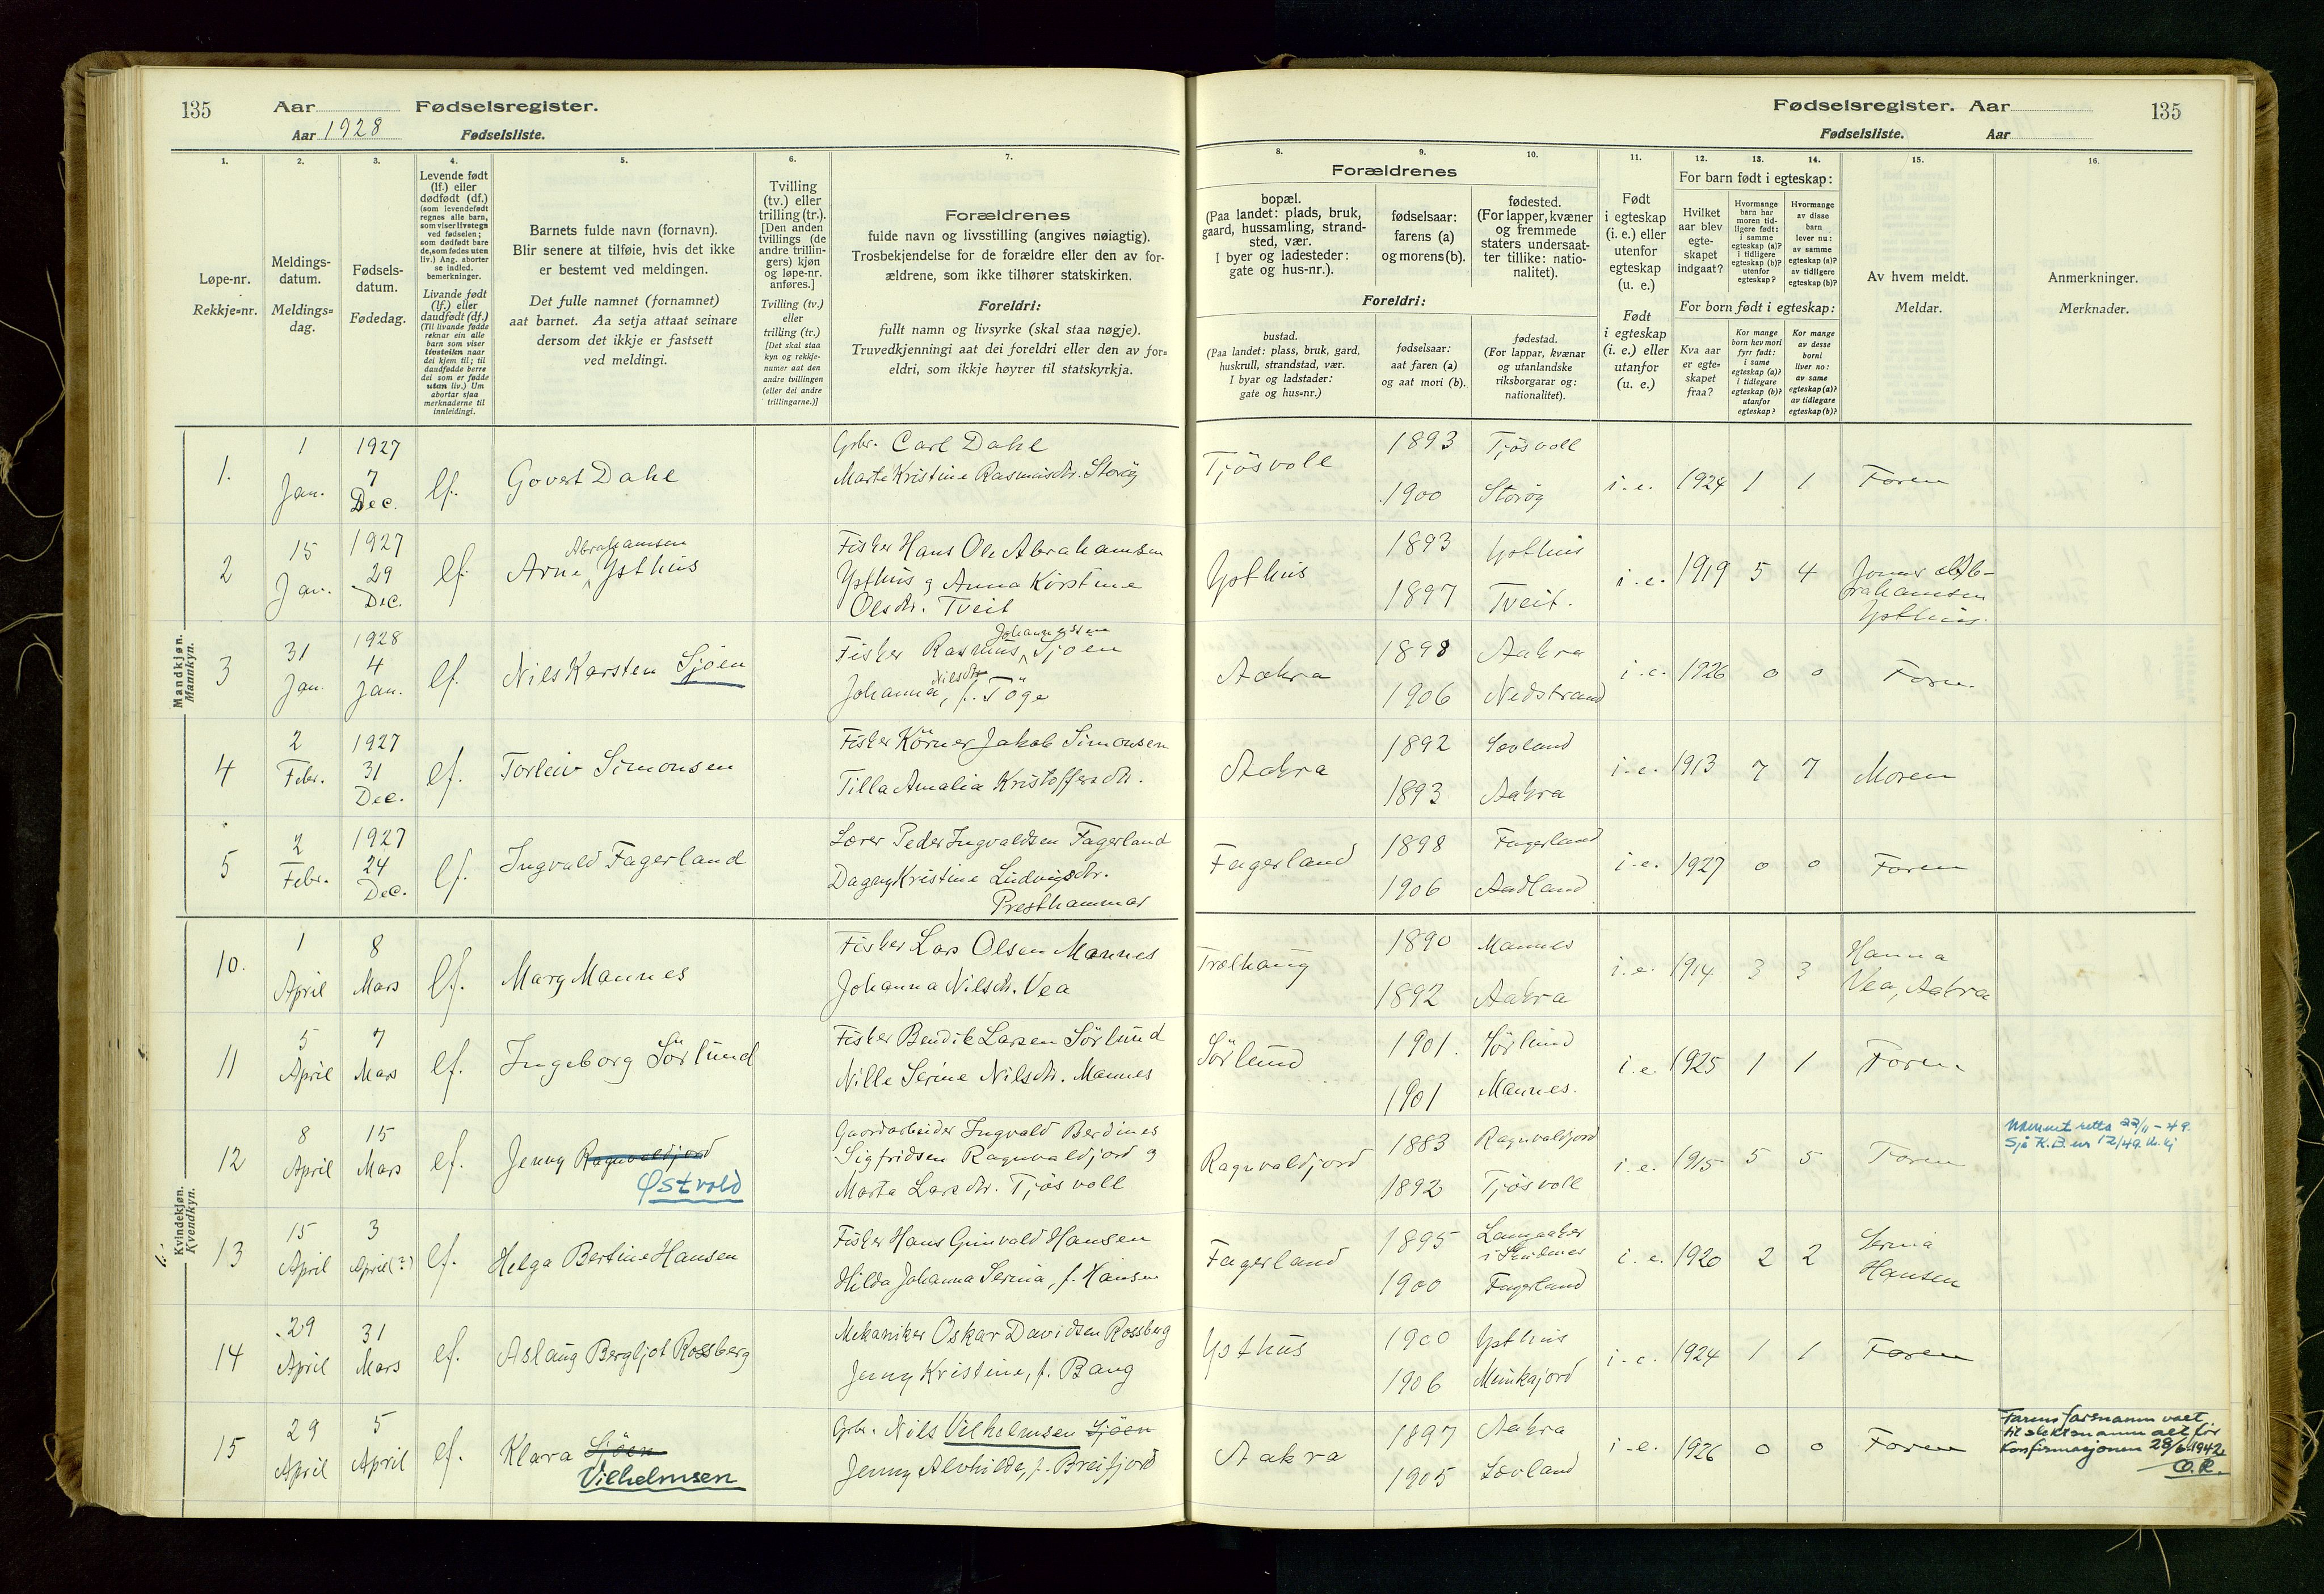 135 Aar Fødselsregister.
Aar 1928 Fødselsliste.
Fødselsregister. Aar 135
Fødselsliste. Aar
1. 2. 3. 4. 5. 6. 7.
Løpe-nr.
Rekkje=nr.
Meldings-
datum.
Meldings=
dag.
Fødsels-
datum.
Fødedag.
Levende født
(lf.) eller
dødfødt (df.)
(som levendefødt
regnes alle barn,
som viser livstegn
ved fødselen;
som dødfødt bare
de, som fødes uten
liv.) Ang. aborter
se indled.
bemerkninger.
Livande født
(lf.) eller
daudfødt (df.)
(Til livande fødde
reknar ein alle
barn som viser
livsteikn naar
dei kjem til; til
daudfødde berre
dei som er fødde
utan liv.) Um
abortar sjaa
merknaderne til
innleidingi.
Barnets fulde navn (fornavn).
Blir senere at tilføie, hvis det ikke
er bestemt ved meldingen.
Det fulle namnet (fornamnet)
aat barnet. Aa setja attaat seinare
dersom det ikkje er fastsett
ved meldingi.
Tvilling
(tv.) eller
trilling (tr.).
[Den anden
tvillings (de
andre trillin-
gers) kjøn
og løpe-nr.
anføres.]
Tvilling (tv.)
eller
trilling (tr.)
[Det skal staa
kyn og rekkje-
numer aat den
andre tvillingen
(eller dei andre
trillingarne.)]
Forældrenes
fulde navn og livsstilling (angives nøiagtig).
Trosbekjendelse for de forældre eller den av for-
ældrene, som ikke tilhører statskirken.
Foreldri:
fullt namn og livsyrke (skal staa nøgje).
Truvedkjenningi aat dei foreldri eller den av for=
eldri, som ikkje høyrer til statskyrkja.
8. 9. 10. 11. 12. 13. 14. 15. 16.
Forældrenes
bopæl.
(Paa landet: plads, bruk,
gaard, hussamling, strand-
sted, vær.
I byer og ladesteder:
gate og hus-nr.).
fødselsaar:
farens (a)
og morens (b).
fødested.
(For lapper, kvæner
og fremmede
staters undersaat-
ter tillike: natio-
nalitet).
Foreldri:
bustad.
(Paa landet: plass, bruk, gard,
huskrull, strandstad, vær.
I byar og ladstader:
gate og hus=nr.)
fødselsaar:
aat faren (a)
og aat mori (b).
fødestad.
(For lappar, kvænar
og utanlandske
riksborgarar og:
nationalitet).
Født
i egteskap
(i. e.) eller
utenfor
egteskap
(u. e.)
Født
i egteskap
(i. e.) eller
utanfor
(u. e.)
For barn født i egteskap:
Hvilket
aar blev
egte-
skapet
indgaat?
Hvormange
barn har
moren tid-
ligere født:
i samme
egteskap (a)?
i tidligere
egteskap (b)?
utenfor
egteskap?
Hvormange
av disse
barn
lever nu:
av samme
egteskap (a)?
av tidligere
egteskap (b)?
For born født i egteskap:
Kva aar
er egte=
skapet
fraa?
Kor mange
born hev mori
fyrr født:
i same
egteskap (a)?
i tidlegare
egteskap (b)?
utanfor
egteskap?
Kor mange
av desse
borni
liver no:
av same
egteskap (a)?
av tidlegare
egteskap (b)?
Av hvem meldt.
Meldar.
Anmerkninger.
Merknader.
Mandkjøn.
Mannkyn.
1. 1 Jan. 1927 7 Dec. lf. Govert Dahl
Gbr. Carl Dahl
Marte Kristine Rasmusdtr. Storøy
Tjøsvoll 1893 Tjøsvoll
1900 Storøy
i. e. 1924 1 1 Faren
2 15 Jan. 1927 29 Dec. lf. Arne Abrahamsen Ysthus
Fisker Hans Ole Abrahamsen
Ysthus og Anna Kirstine
Olsdtr. Tveit
Ysthus 1893 Ysthus
1897 Tveit.
i. e. 1919 5 4
Ab-
rahamsen
Ysthus.
3 31 Jan. 1928 4 Jan. lf. Nils Karsten Sjøen
Fisker Rasmus Johannessen Sjøen
Johanna Nilsdtr., f. Töge
Aakra 1898 Aakra
1906 Nedstrand
i. e. 1926 0 0 Faren
4 2 Febr. 1927 31 Dec. lf. Torleiv Simonsen
Fisker Körner Jakob Simonsen
Tilla Amalia Kristoffersdtr.
Aakra 1892 Sævland
1893 Aakra
i. e. 1913 7 7 Moren
5 2 Febr. 1927 24 Dec. lf. Ingvald Fagerland
Lærer Peder Ingvaldsen Fagerland
Dagny Kristine Ludvigsdtr.
Presthammar
Fagerland 1898 Fagerland
1906 Aadland
i. e. 1927 0 0 Faren
Kvindekjøn.
Kvendkyn.
10. 1 April 8 Mars lf. Mary Mannes
Fisker Lars Olsen Mannes
Johanna Nilsdtr. Vea
Trælhaug 1890 Mannes
1892 Aakra
i. e. 1914 3 3 Hanna
Vea, Aakra
11 5 April 7 Mars lf. Ingeborg Sörlund
Fisker Bendik Larsen Sörlund
Nille Serine Nilsdtr. Mannes
Sörlund 1901. Sörlund
1901 Mannes.
i. e. 1925 1 1 Faren
12 8 April 15 Mars lf. Jenny Ragnvaldjord
Østvold
Gaardarbeider Ingvald Berdines
Sigfridsen Ragnvaldjord og
Marta Larsdtr. Tjøsvoll
Ragnvaldjord 1883 Ragnvaldjord
1892 Tjøsvoll
i. e. 1915 5 5 Faren
Namnet retta 22/11-49.
Sjå K.B. nr 12/49.
13 15 April 3 April (?) lf. Helga Bertine Hansen
Fisker Hans Grinvald Hansen
Hilda Johanna Serina, f. Hansen
Fagerland 1895 Langaaker
i Skudenes
1900 Fagerland
i. e. 1920 2 2 Serina
Hansen
14 29 April 31 Mars lf. Aslaug Bergljot Rossberg
Mekaniker Oskar Davidsen Rossberg
Jenny Kristine, f. Bang
Ysthus 1900 Ysthus
1906 Munkajord
i. e. 1924 1 1 Faren
15 29 April 5 April lf. Klara Sjöen
Vilhelmsen
Gbr. Nils Vilhelmsen Sjöen
Jenny Alvhilde, f. Breifjord
Aakra 1897 Aakra
1905 Sævland
i. e. 1926 0 0 Faren
Farens farsnamn valt
til slektsnamn alt før
konfirmasjonen 28/6 1942
O.R.